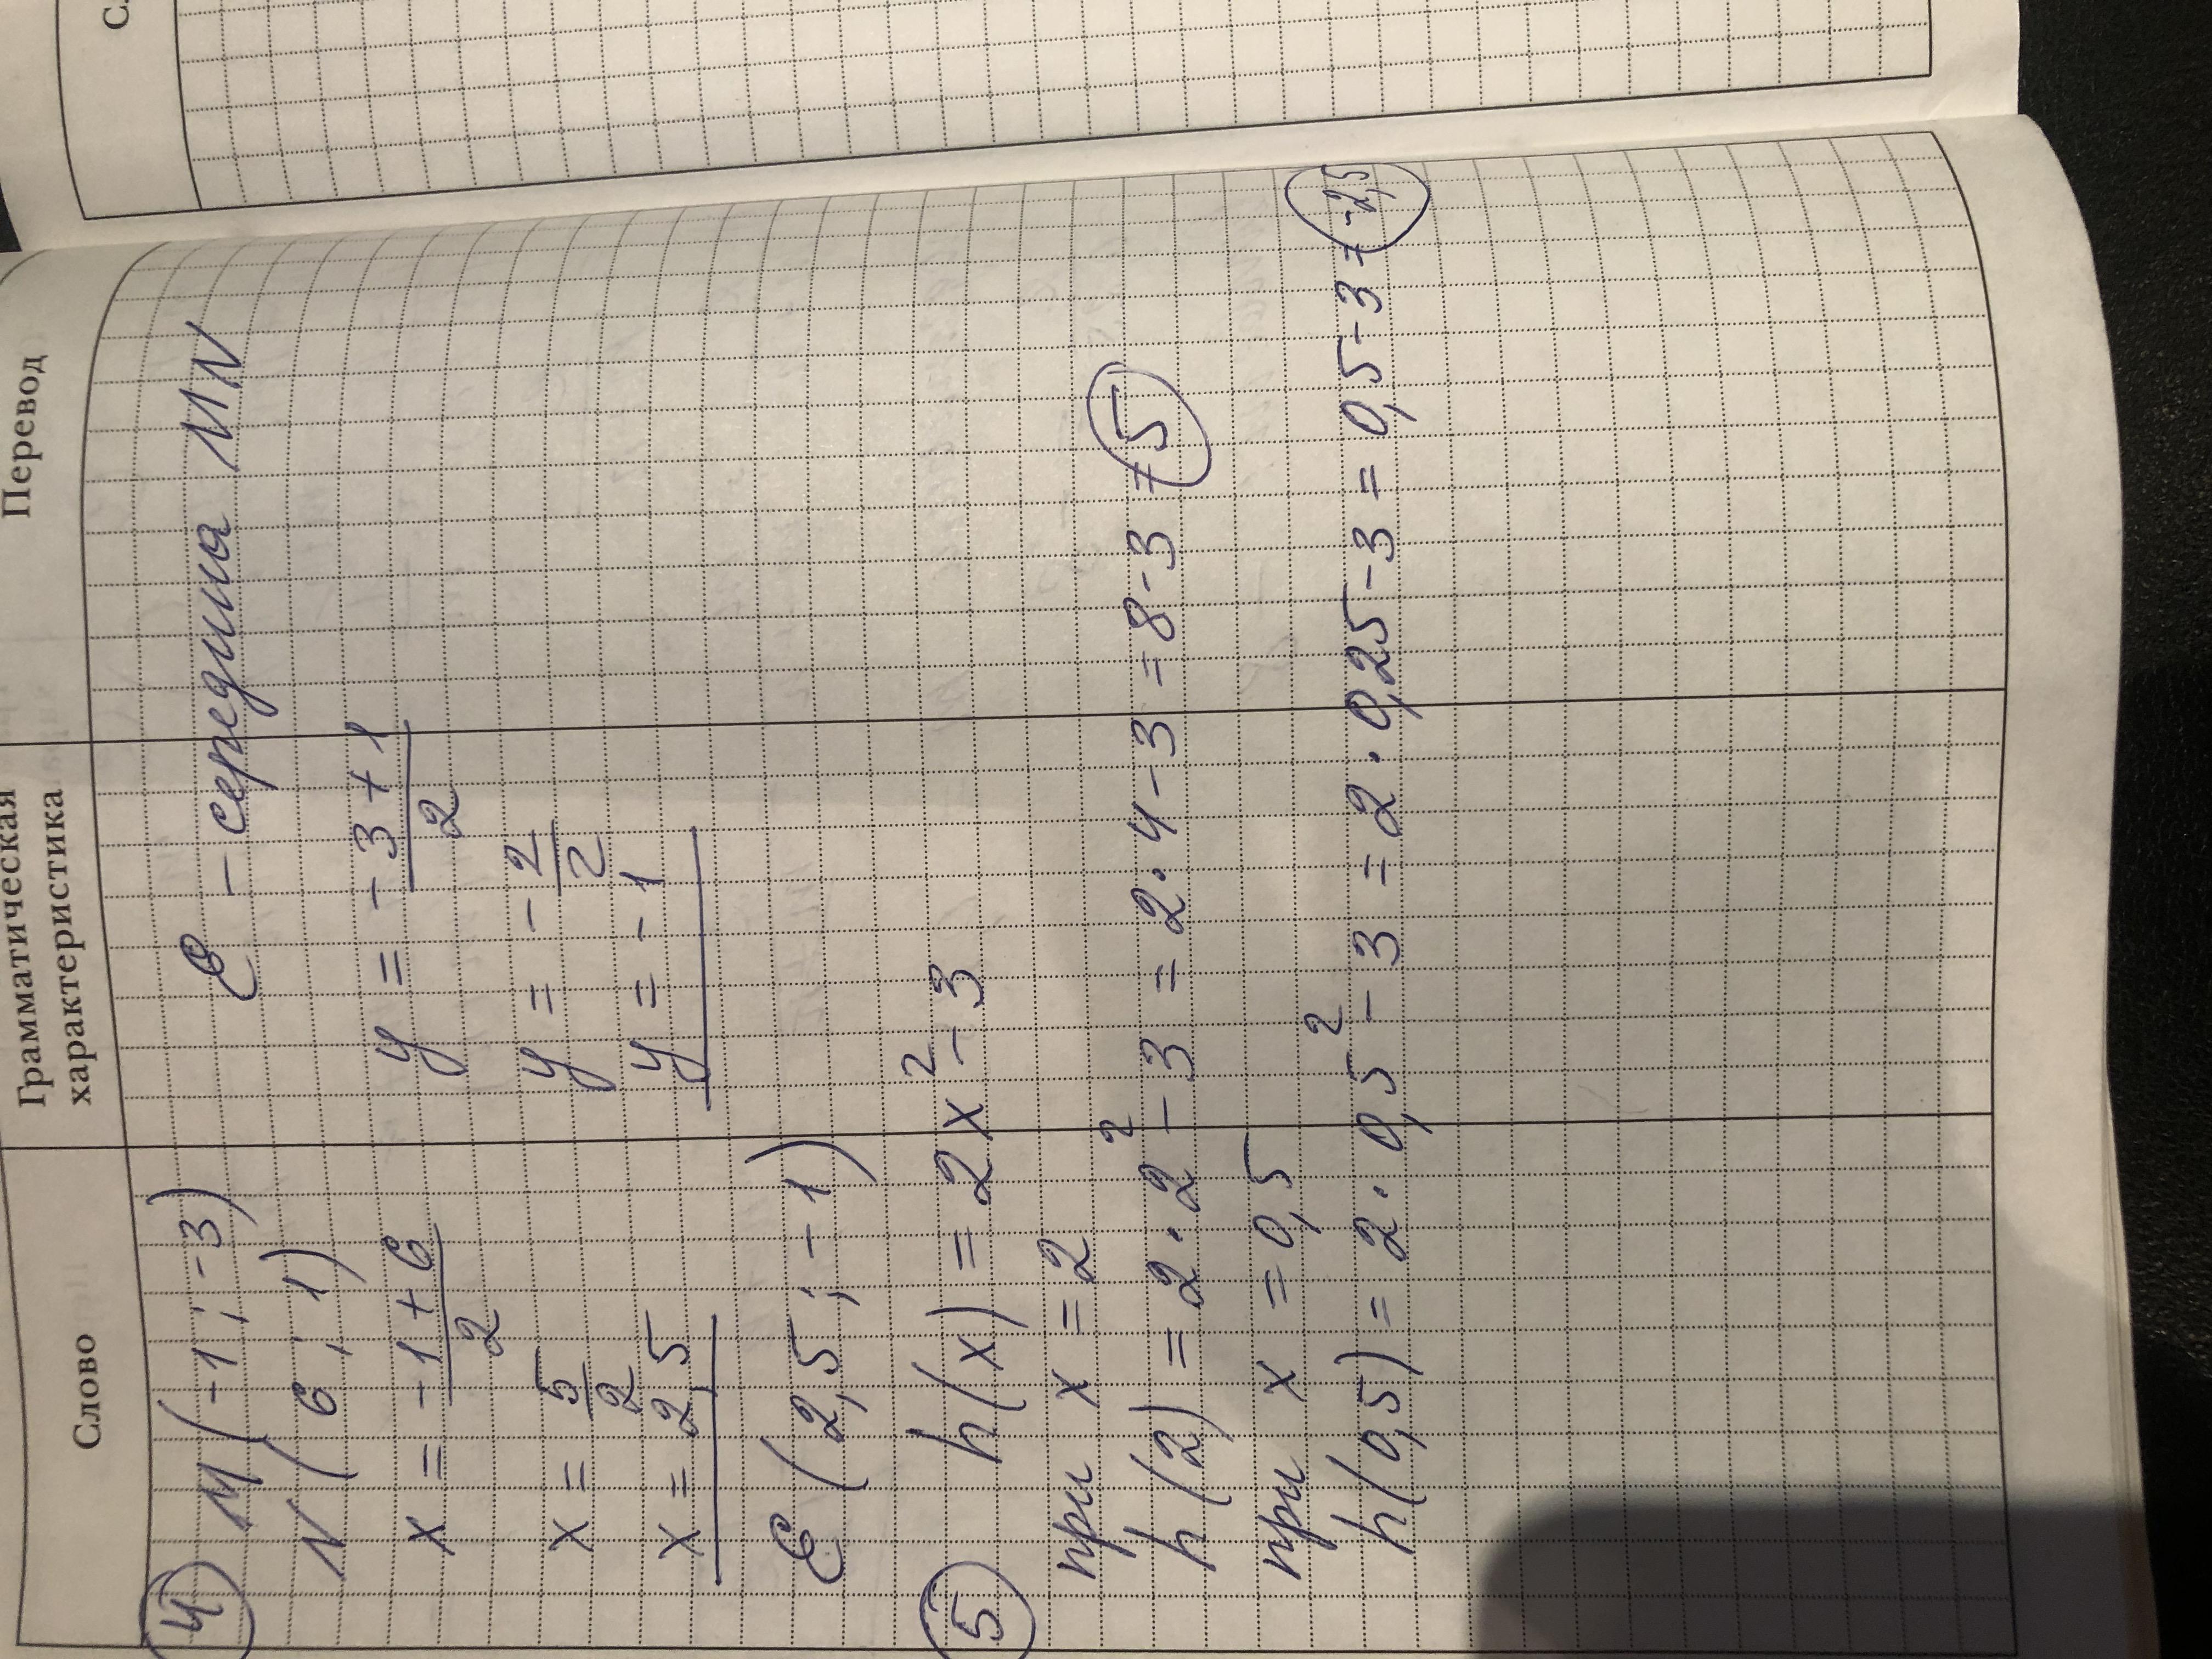 С
Слово Грамматическая характеристика Перевод
4 M(-1; -3) C - середина MN
N(6; 1)
x = -1+6/2 y = -3+1/2
x = 5/2 y = -2/2
x = 2,5 y = -1
C (2,5; -1)
5 h(x) = 2x² - 3
при x = 2
h(2) = 2·2² - 3 = 2·4 - 3 = 8 - 3 = 5
при x = 0,5
h(0,5) = 2·0,5² - 3 = 2·0,25 - 3 = 0,5 - 3 = -2,5